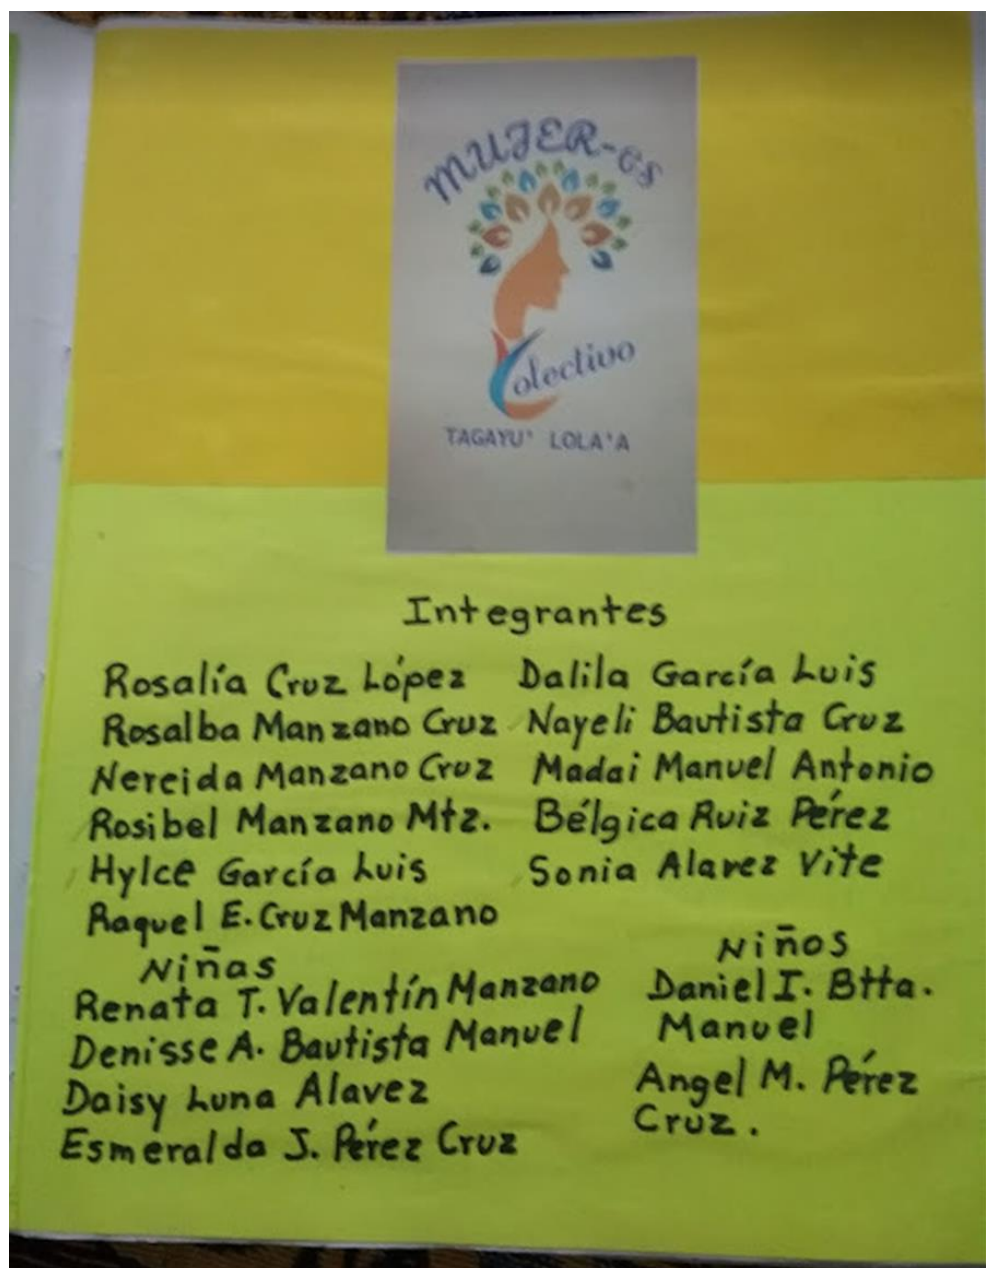 MUJER-es
Colectivo
TAGAYU' LOLA'A
Integrantes
Rosalía Cruz López
Rosalba Manzano Cruz
Nereida Manzano Cruz
Rosibel Manzano Mtz.
Hylce García Luis
Raquel E. Cruz Manzano
Dalila García Luis
Nayeli Bautista Cruz
Madai Manuel Antonio
Bélgica Ruiz Pérez
Sonia Alavez Vite
Niñas
Renata T. Valentín Manzano
Denisse A. Bautista Manuel
Daisy Luna Alavez
Esmeralda J. Pérez Cruz
Niños
Daniel I. Btta.
Manuel
Angel M. Pérez
Cruz.